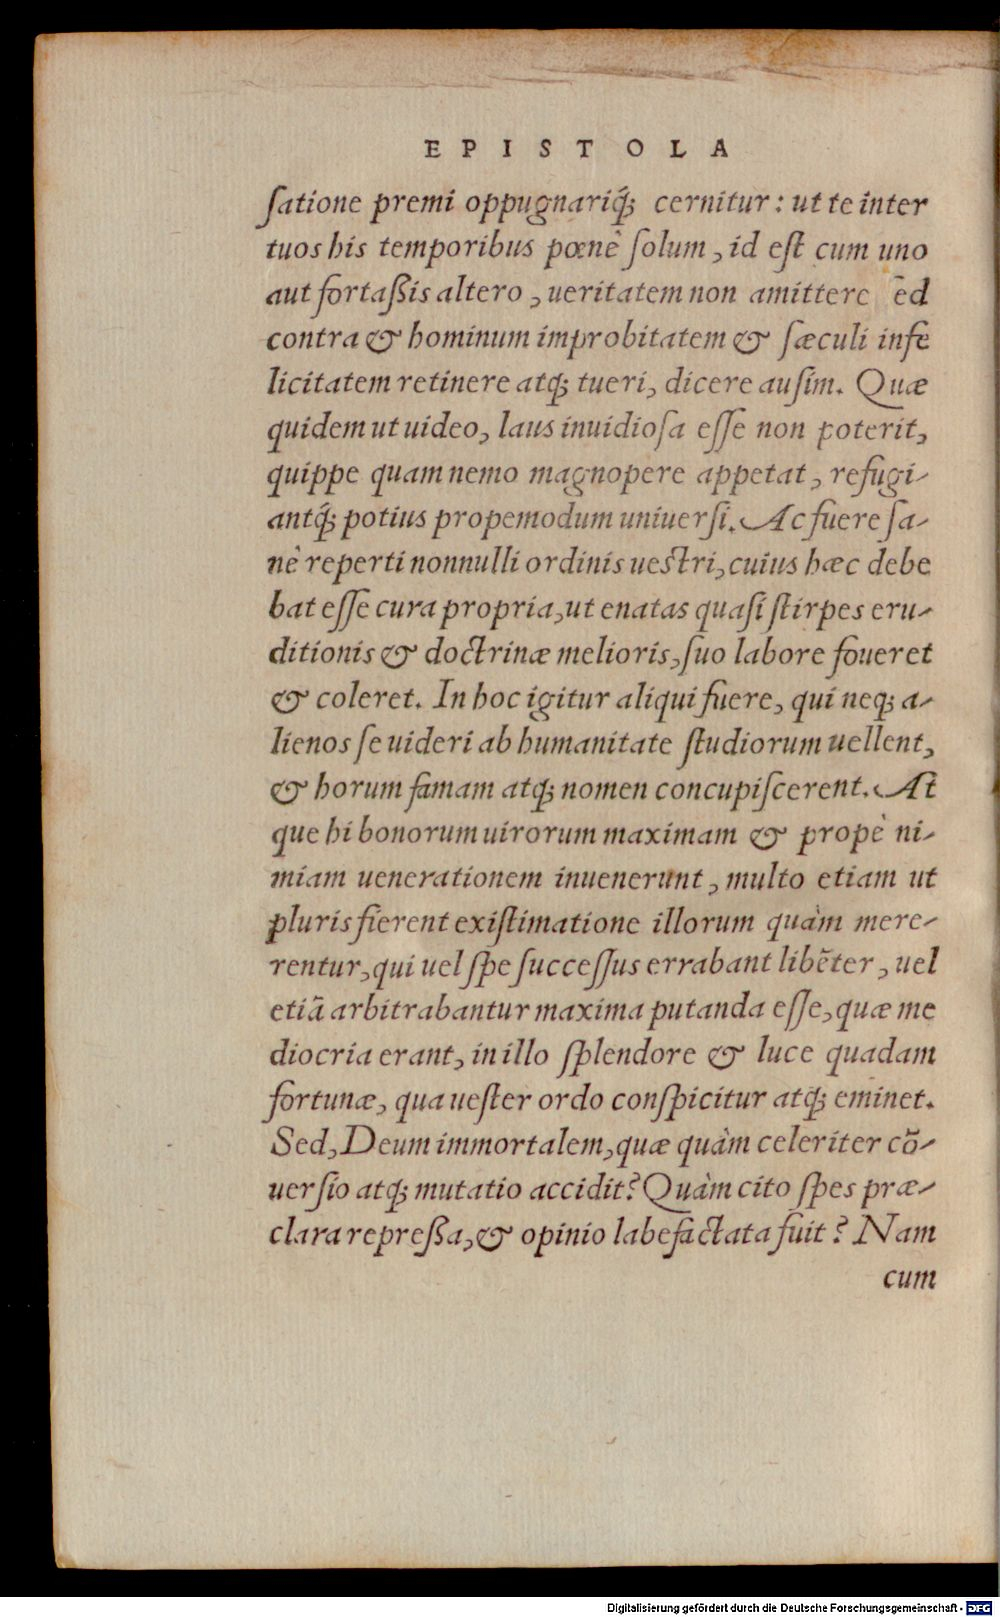 EPISTOLA
ſatione premi oppugnariq́; cernitur: ut te inter
tuos his temporibus pœnè ſolum, id eſt cum uno
aut fortaßis altero, ueritatem non amittere
contra & hominum improbitatem & ſæculi infe
licitatem retinere atq; tueri, dicere auſim. Quæ
quidem ut uideo, laus inuidioſa eſſe non poterit,
quippe quam nemo magnopere appetat, refugi-
antq́; potius propemodum uniuerſi. Ac fuere ſa-
nè reperti nonnulli ordinis ueſtri, cuius hæc debe
bat eſſe cura propria, ut enatas quaſi ſtirpes eru-
ditionis & doctrinæ melioris, ſuo labore foueret
& coleret. In hoc igitur aliqui fuere, qui neq; a-
lienos ſe uideri ab humanitate ſtudiorum uellent,
& horum famam atq; nomen concupiſcerent. At
que hi bonorum uirorum maximam & propè ni-
miam uenerationem inuenerunt, multo etiam ut
pluris fierent exiſtimatione illorum quàm mere-
rentur, qui uel ſpe ſucceſſus errabant libēter, uel
etiā arbitrabantur maxima putanda eſſe, quæ me
diocria erant, in illo ſplendore & luce quadam
fortunæ, qua ueſter ordo conſpicitur atq; eminet.
Sed, Deum immortalem, quæ quàm celeriter cō-
uerſio atq; mutatio accidit? Quàm cito ſpes præ-
clara repreßa, & opinio labefactata fuit? Nam
cum
Digitalisierung gefördert durch die Deutsche Forschungsgemeinschaft - DFG